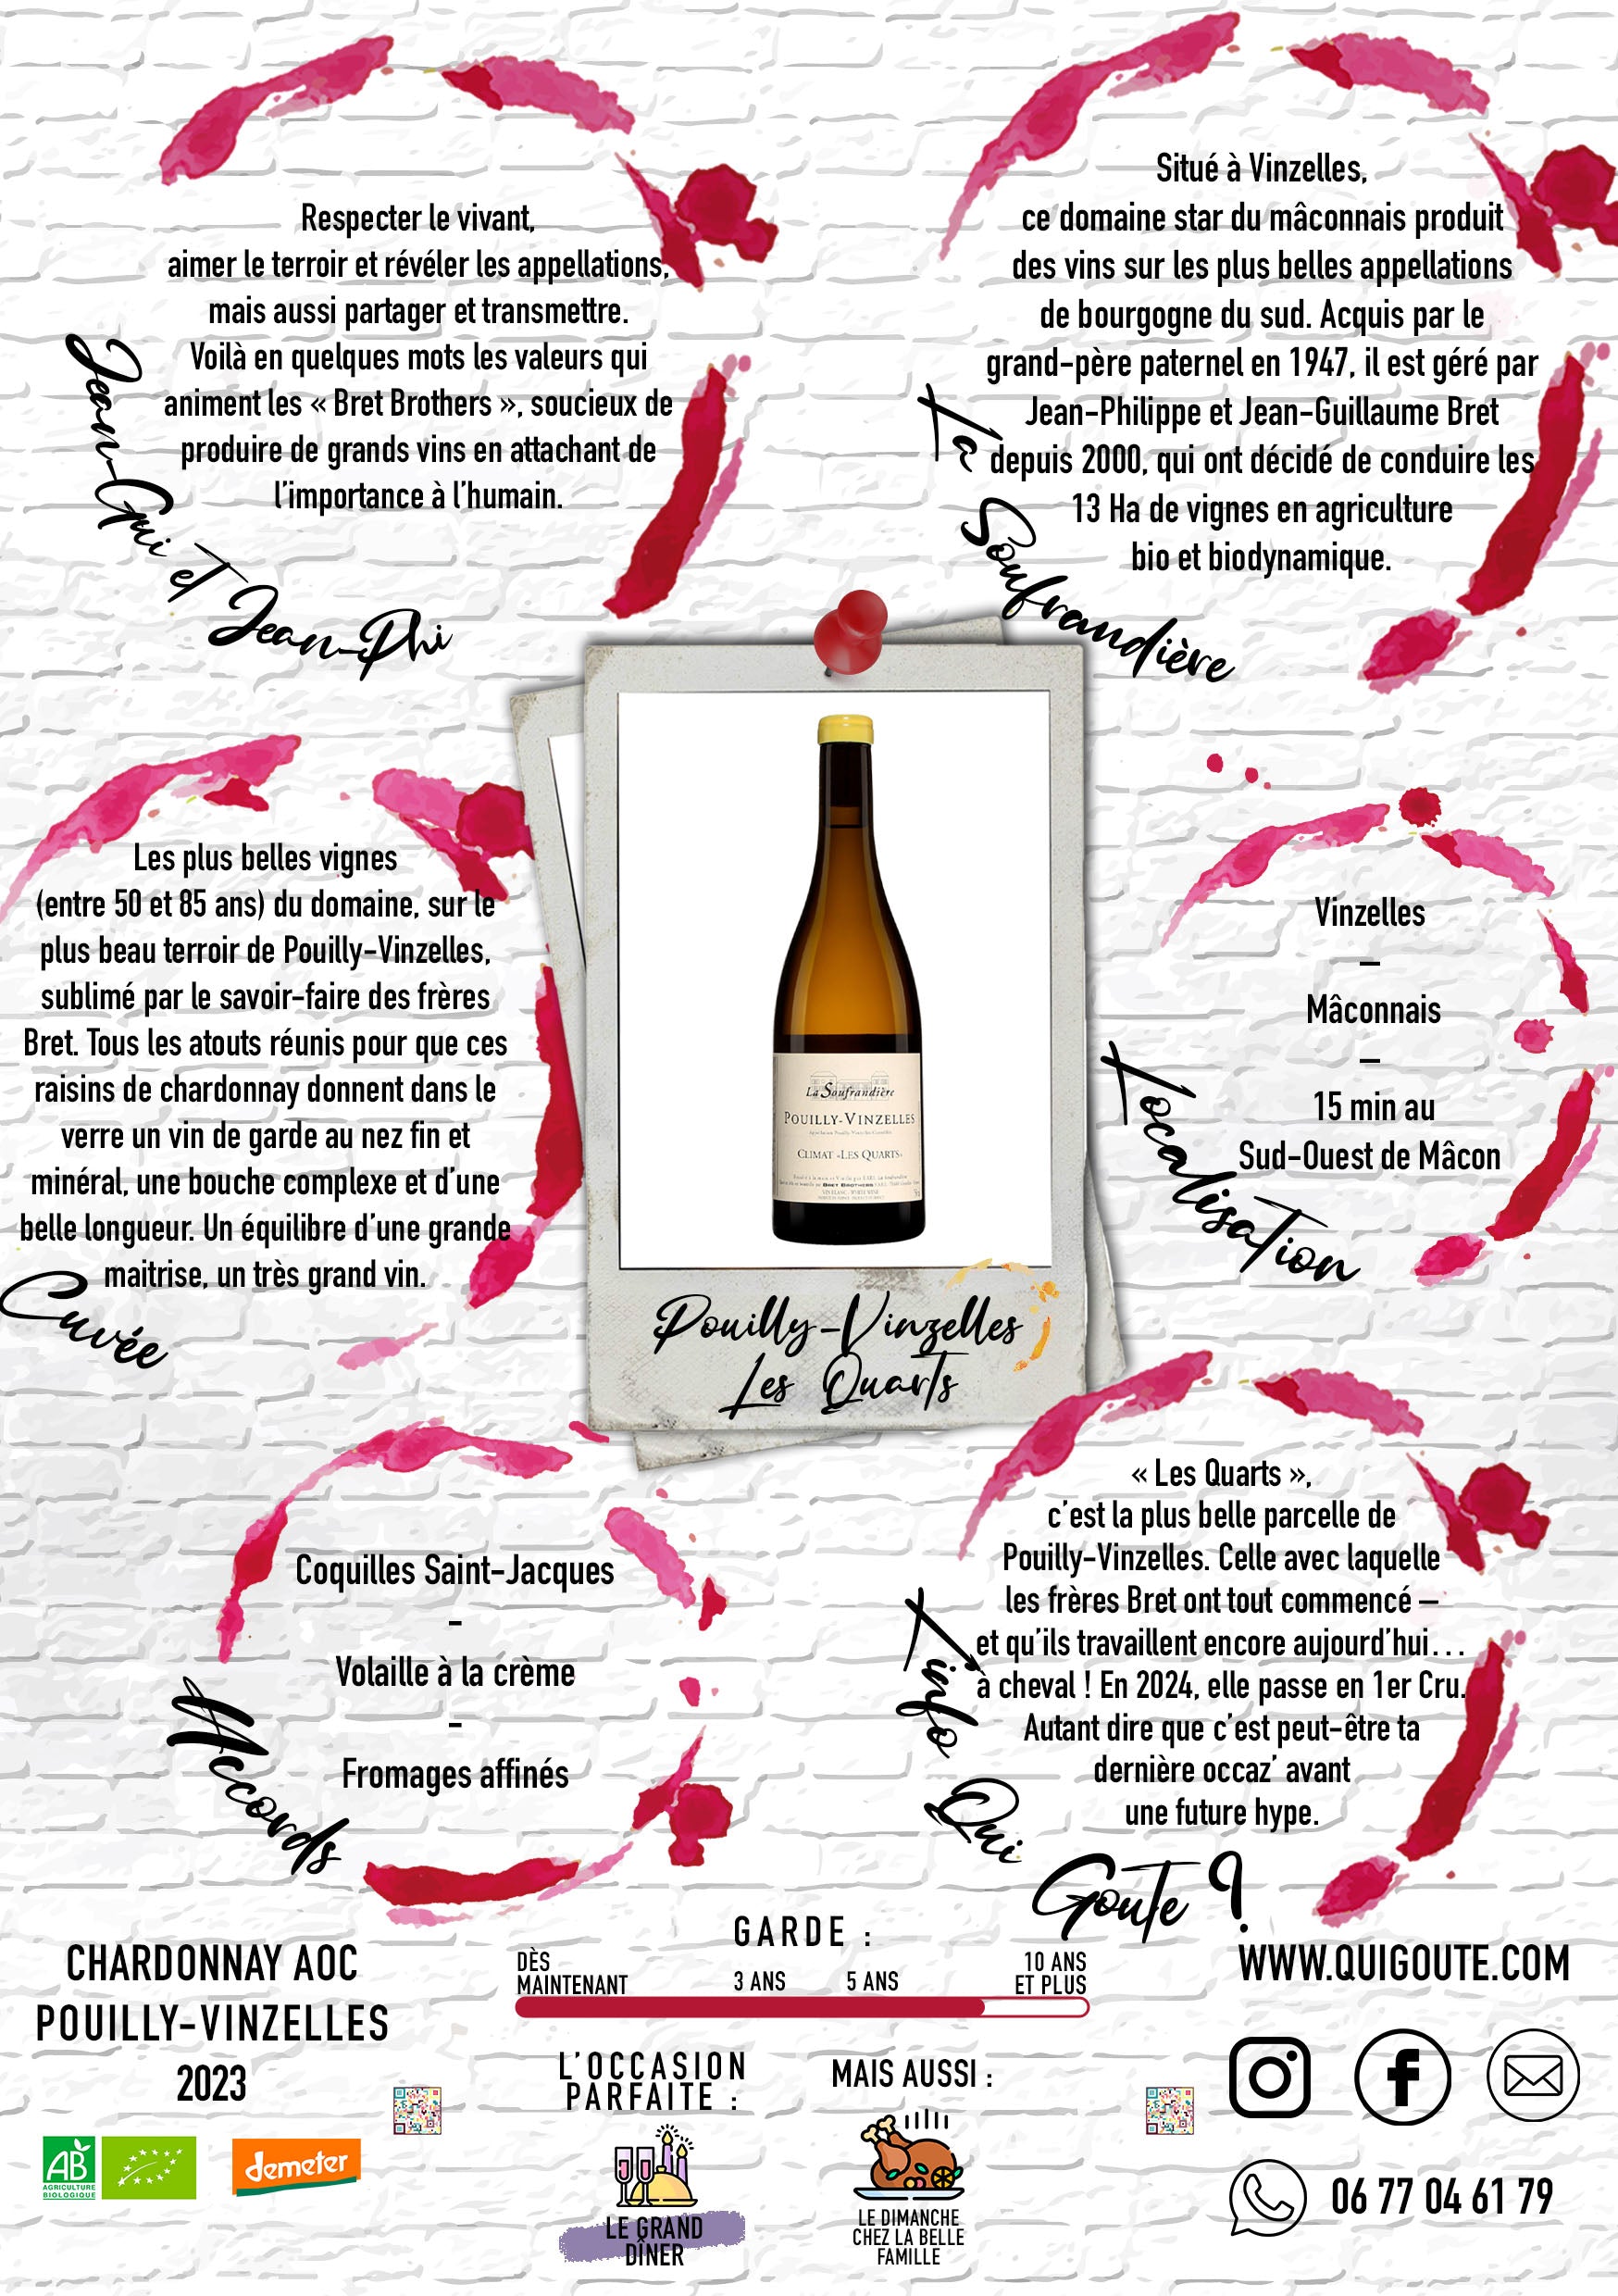 Respecter le vivant,
aimer le terroir et révéler les appellations,
mais aussi partager et transmettre.
Voilà en quelques mots les valeurs qui
animent les « Bret Brothers », soucieux de
produire de grands vins en attachant de
l'importance à l'humain.
Jean-Gui et Jean-Phi
Situé à Vinzelles,
ce domaine star du mâconnais produit
des vins sur les plus belles appellations
de bourgogne du sud. Acquis par le
grand-père paternel en 1947, il est géré par
Jean-Philippe et Jean-Guillaume Bret
depuis 2000, qui ont décidé de conduire les
13 Ha de vignes en agriculture
bio et biodynamique.
La Soufrandière
Les plus belles vignes
(entre 50 et 85 ans) du domaine, sur le
plus beau terroir de Pouilly-Vinzelles,
sublimé par le savoir-faire des frères
Bret. Tous les atouts réunis pour que ces
raisins de chardonnay donnent dans le
verre un vin de garde au nez fin et
minéral, une bouche complexe et d'une
belle longueur. Un équilibre d'une grande
maitrise, un très grand vin.
Cuvée
La Soufrandière
POUILLY-VINZELLES
CLIMAT «LES QUARTS»
BRET BROTHERS
Pouilly-Vinzelles
Les Quarts
Vinzelles
–
Mâconnais
–
15 min au
Sud-Ouest de Mâcon
Localisation
Coquilles Saint-Jacques
-
Volaille à la crème
-
Fromages affinés
Accords
« Les Quarts »,
c'est la plus belle parcelle de
Pouilly-Vinzelles. Celle avec laquelle
les frères Bret ont tout commencé –
et qu'ils travaillent encore aujourd'hui...
à cheval ! En 2024, elle passe en 1er Cru.
Autant dire que c'est peut-être ta
dernière occaz' avant
une future hype.
L'info Qui Goute ?
CHARDONNAY AOC
POUILLY-VINZELLES
2023
AB
AGRICULTURE
BIOLOGIQUE
demeter
GARDE :
DÈS
MAINTENANT
3 ANS
5 ANS
10 ANS
ET PLUS
L'OCCASION
PARFAITE :
LE GRAND
DÎNER
MAIS AUSSI :
LE DIMANCHE
CHEZ LA BELLE
FAMILLE
WWW.QUIGOUTE.COM
06 77 04 61 79